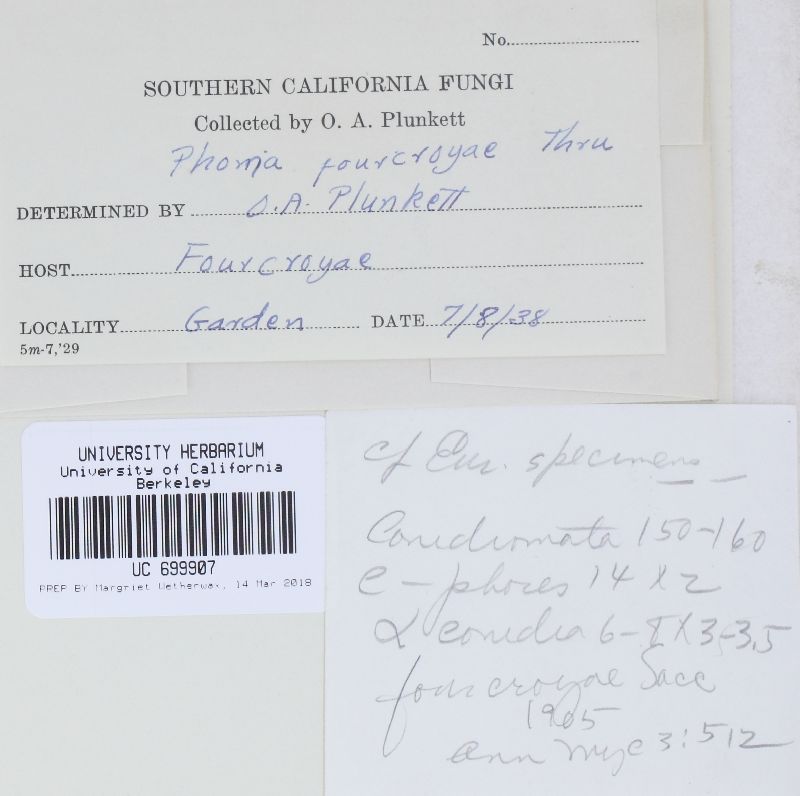 No.
SOUTHERN CALIFORNIA FUNGI
Collected by O. A. Plunkett
Phoma fourcroyae Thru
DETERMINED BY O.A. Plunkett
HOST Fourcroyae
LOCALITY Garden DATE 7/8/38
5m-7,'29
UNIVERSITY HERBARIUM
University of California
Berkeley
UC 699907
PREP BY Margriet Wetherwax, 14 Mar 2018
cf Eur. specimens
Conidiomata 150-160
C-phores 14 X 2
α conidia 6-8 X 3-3.5
fourcroyae Sacc
1905
Ann Myc 3:512